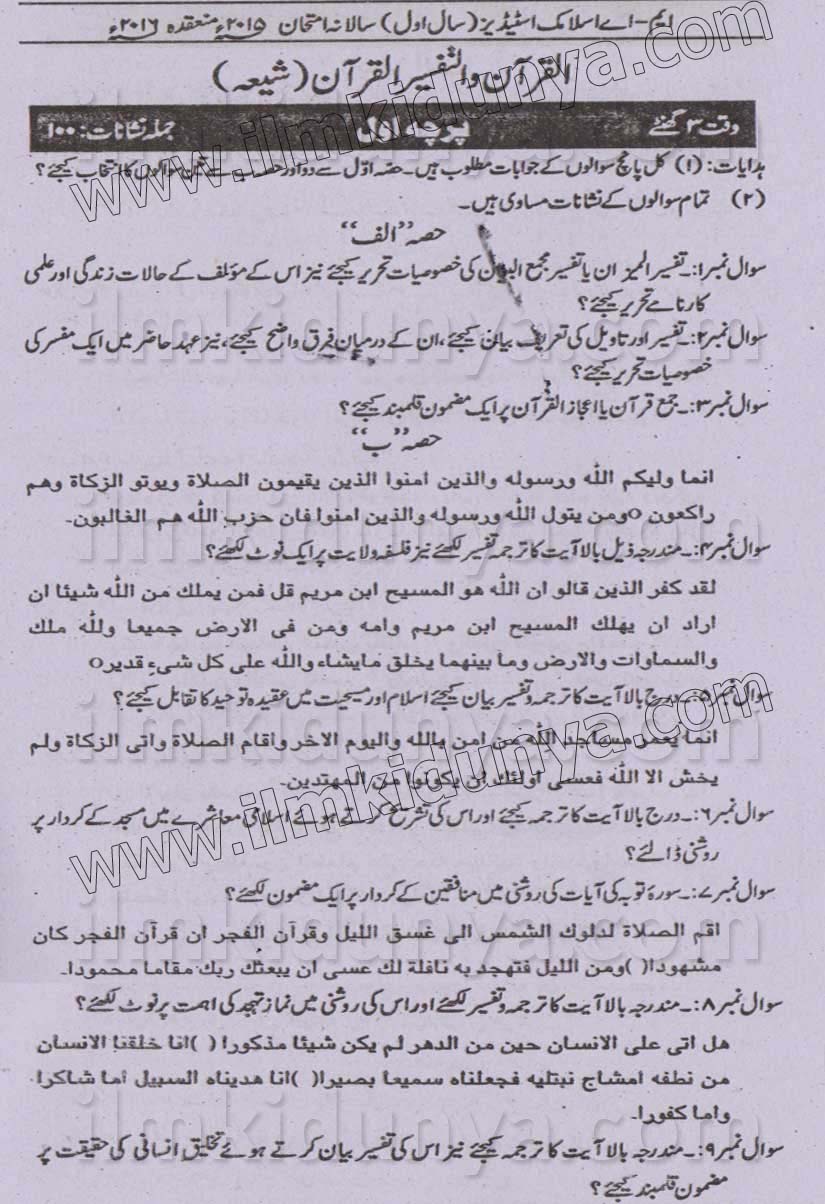 ایم-اے اسلامک اسٹیڈیز (سال اول) سالانہ امتحان ۲۰۱۵ء منعقدہ ۲۰۱۶ء
القرآن والتفسیر القرآن (شیعہ)
وقت ۳ گھنٹے پرچہ اول جملہ نشانات: ۱۰۰
ہدایات: (۱) کل پانچ سوالوں کے جوابات مطلوب ہیں۔ حصہ اوّل سے دو اور حصہ ب سے تین سوالوں کا انتخاب کیجئے؟
(۲) تمام سوالوں کے نشانات مساوی ہیں۔
حصہ ”الف“
سوال نمبر۱:۔ تفسیر المیزان یا تفسیر مجمع البیان کی خصوصیات تحریر کیجئے نیز اس کے مؤلف کے حالات زندگی اور علمی
کارنامے تحریر کیجئے؟
سوال نمبر۲:۔ تفسیر اور تاویل کی تعریف بیان کیجئے، ان کے درمیان فرق واضح کیجئے، نیز عہد حاضر میں ایک مفسر کی
خصوصیات تحریر کیجئے؟
سوال نمبر۳:۔ جمع قرآن یا اعجاز القرآن پر ایک مضمون قلمبند کیجئے؟
حصہ ”ب“
انما وليكم الله ورسوله والذين امنوا الذين يقيمون الصلاة ويوتو الزكاة وهم
راكعون O ومن يتول الله ورسوله والذين امنوا فان حزب الله هم الغالبون۔
سوال نمبر۴:۔ مندرجہ ذیل بالا آیت کا ترجمہ تفسیر لکھئے نیز فلسفہ ولایت پر ایک نوٹ لکھئے؟
لقد كفر الذين قالو ان الله هو المسيح ابن مريم قل فمن يملك من الله شيئا ان
اراد ان يهلك المسيح ابن مريم وامه ومن فى الارض جميعا ولله ملك
والسماوات والارض وما بينهما يخلق مايشاء والله على كل شىء قدير O
سوال نمبر۵:۔ درج بالا آیت کا ترجمہ و تفسیر بیان کیجئے اسلام اور مسیحیت میں عقیدہ توحید کا تقابل کیجئے؟
انما يعمر مساجد الله من امن بالله واليوم الاخر واقام الصلاة واتى الزكاة ولم
يخش الا الله فعسى اولئك ان يكونوا من المهتدين۔
سوال نمبر۶:۔ درج بالا آیت کا ترجمہ کیجئے اور اس کی تشریح کرتے ہوئے اسلامی معاشرے میں مسجد کے کردار پر
روشنی ڈالئے؟
سوال نمبر۷:۔ سورۂ توبہ کی آیات کی روشنی میں منافقین کے کردار پر ایک مضمون لکھئے؟
اقم الصلاة لدلوك الشمس الى غسق الليل وقرآن الفجر ان قرآن الفجر كان
مشهودا( )ومن الليل فتهجد به نافلة لك عسى ان يبعثك ربك مقاما محمودا۔
سوال نمبر۸:۔ مندرجہ بالا آیت کا ترجمہ و تفسیر لکھئے اور اس کی روشنی میں نماز تہجد کی اہمت پر نوٹ لکھئے؟
هل اتى على الانسان حين من الدهر لم يكن شيئا مذكورا ( )انا خلقنا الانسان
من نطفه امشاج نبتليه فجعلناه سميعا بصيرا( )انا هديناه السبيل اما شاكرا
واما كفورا۔
سوال نمبر۹:۔ مندرجہ بالا آیت کا ترجمہ کیجئے نیز اس کی تفسیر بیان کرتے ہوئے تخلیق انسانی کی حقیقت پر
مضمون قلمبند کیجئے؟
www.ilmkidunya.com
www.ilmkidunya.com
ilmkidunya.com
ilmkidunya.com
ilmkidunya.com
ilmkidunya.com
ilmkidunya.com
ilmkidunya.com